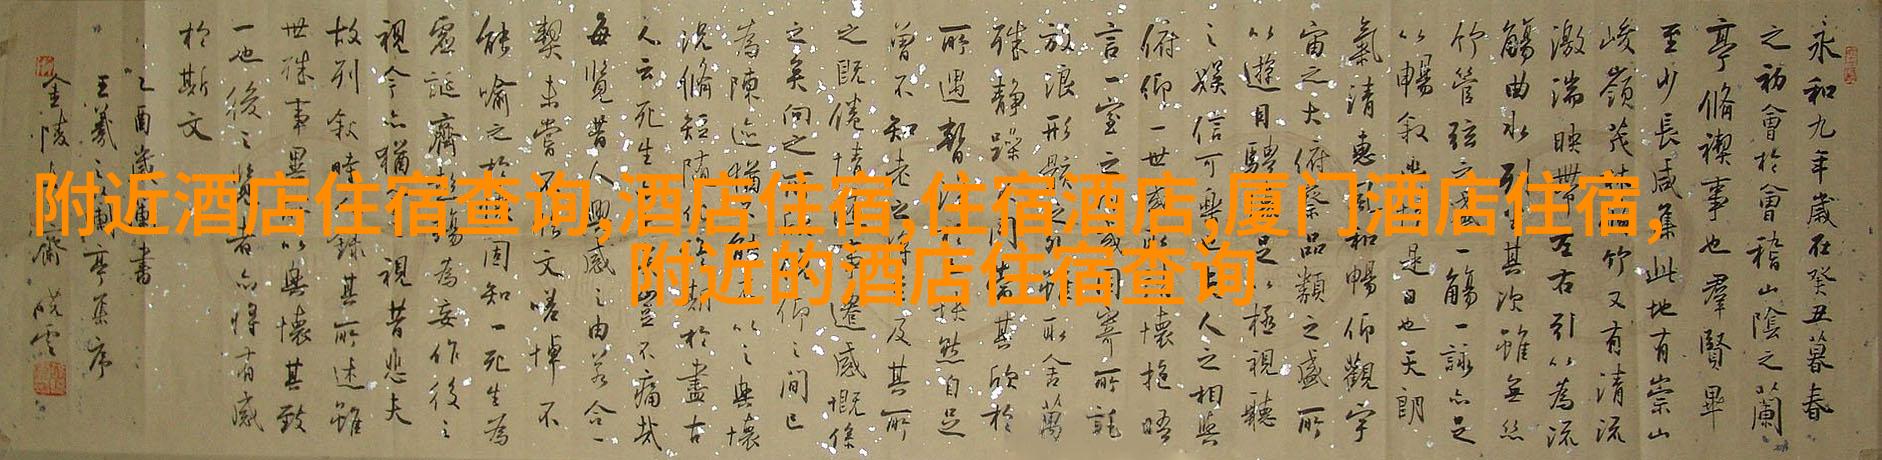 附近酒店住宿查询,酒店住宿,住宿酒店,厦门酒店住宿,
附近的酒店住宿查询
永和九年歲在癸丑暮春
之初會於會稽山陰之蘭
亭脩禊事也羣賢畢
至少長咸集此地有崇山
峻嶺茂林脩竹又有清流
激湍映帶左右引以為流
觴曲水列坐其次雖無絲
竹管弦之盛一觴一詠亦足
以暢敘幽情是日也天朗
氣清惠風和暢仰觀宇
宙之大俯察品類之盛所
以遊目騁懷足以極視聽
之娛信可樂也夫人之相與
俯仰一世或取諸懷抱晤
言一室之內或因寄所託
放浪形骸之外雖取舍萬
殊靜躁不同當其欣於
所遇暫得於己快然自足
曾不知老之將至及其所
之既倦情隨事遷感慨係
之矣向之所欣俛仰之間已
為陳迹猶不能不以之興懷
況脩短隨化終期於盡古
人云死生亦大矣豈不痛哉
每覽昔人興感之由若合一
契未嘗不臨文嗟悼不
能喻之於懷固知一死生為
虛誕齊彭殤為妄作後之
視今亦猶今之視昔悲夫
故列敘時人錄其所述雖
世殊事異所以興懷其致
一也後之覽者亦將有感
於斯文
乙酉歲書
王羲之蘭亭集序
金陵齋